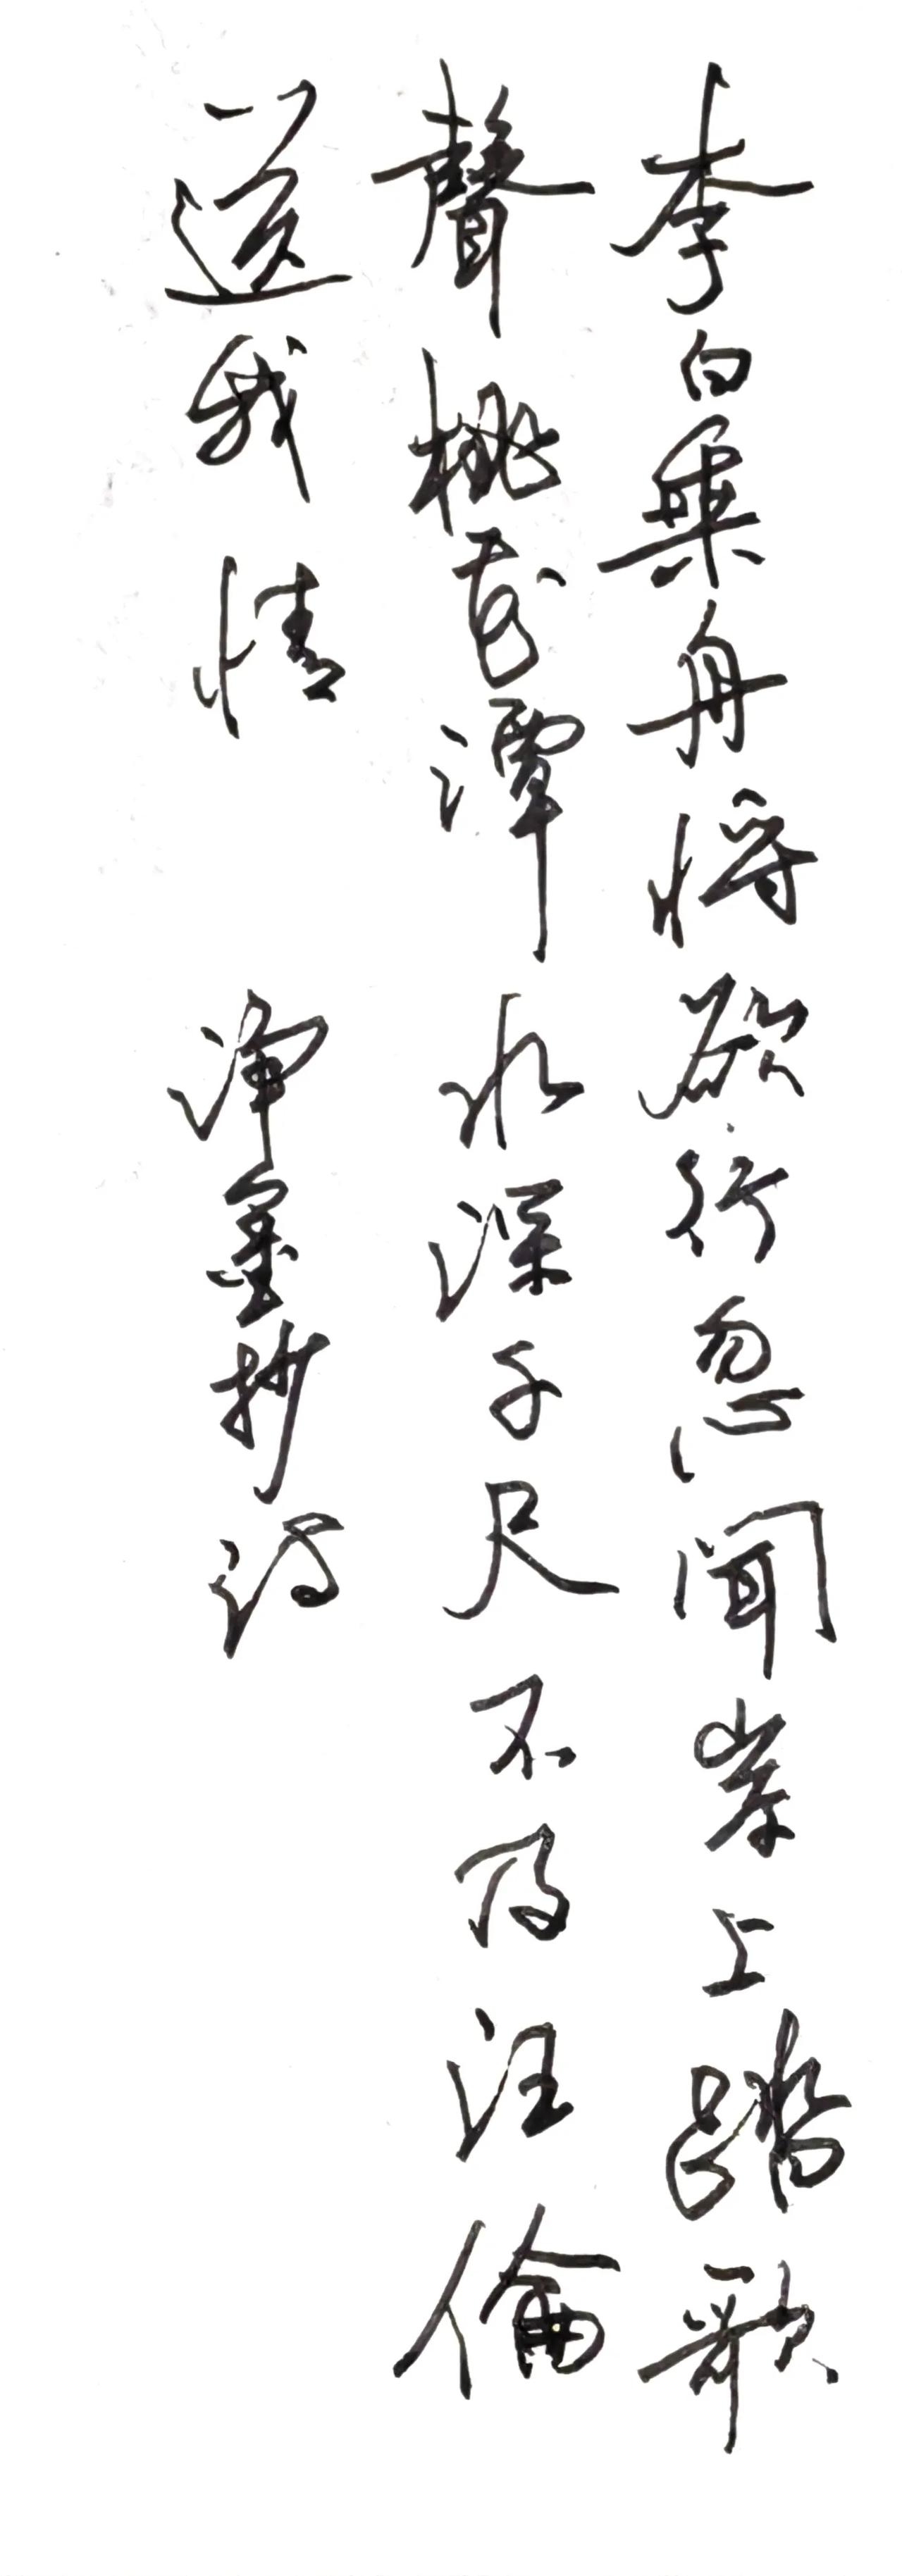 李白乘舟將欲行忽聞岸上踏歌
聲桃花潭水深千尺不及汪倫
送我情 净墨抄詩